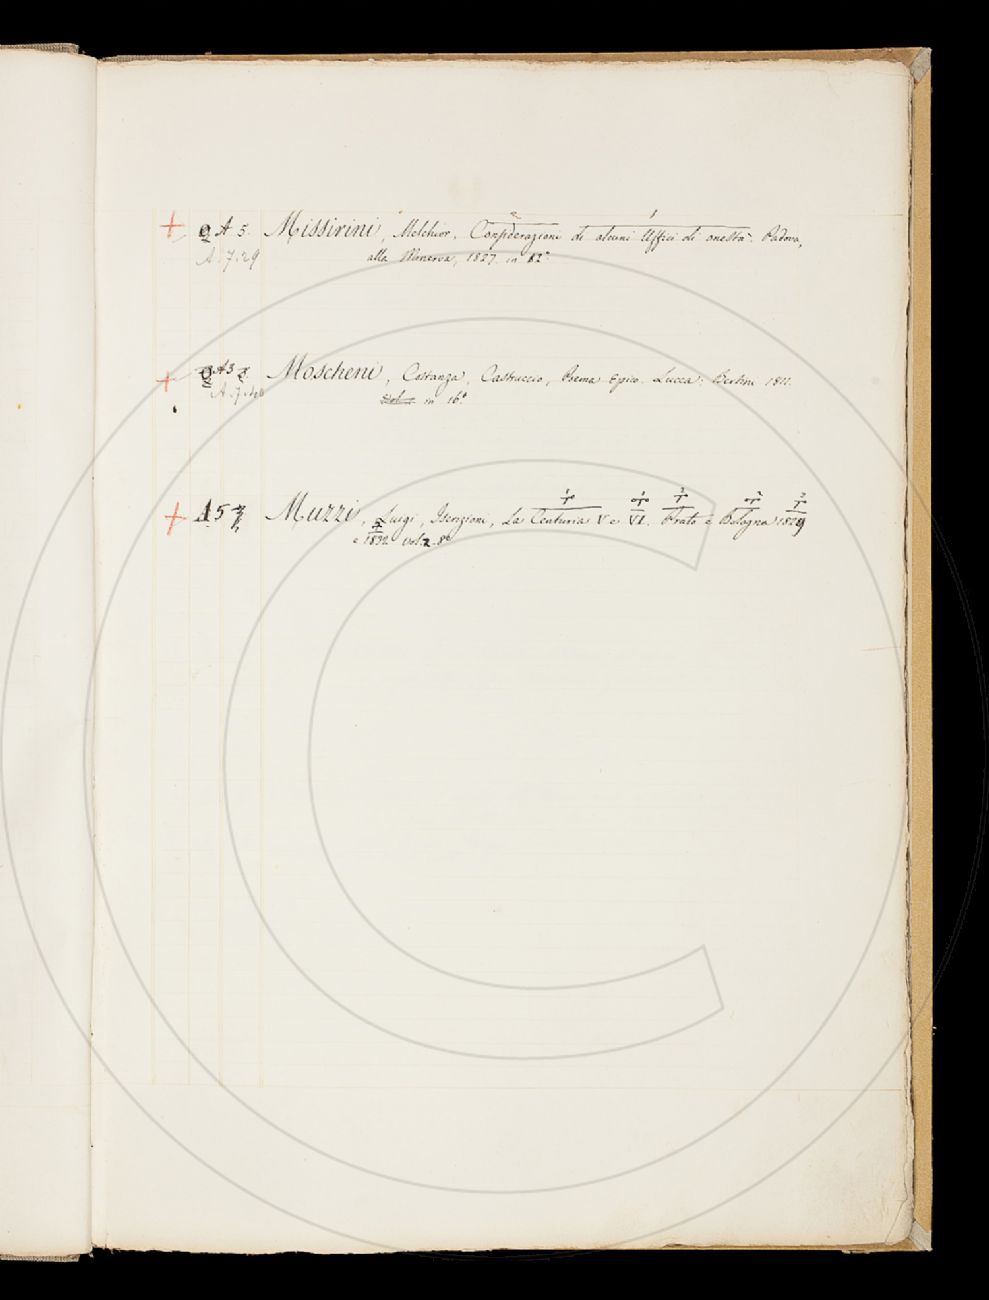 A 5. Missirini, Melchior. Considerazioni di alcuni Uffici di onestà. Padova,
A. 7. 29 alla Minerva, 1827. in 12°.
A 3 Moscheni, Costanza, Castruccio, Poema Epico. Lucca: Bertini 1811.
A. 7. in 16°
A 5 Muzzi, Luigi, Iscrizioni, La Centuria V e VI. Prato e Bologna 1829
e 1832 vol. 2. 8°